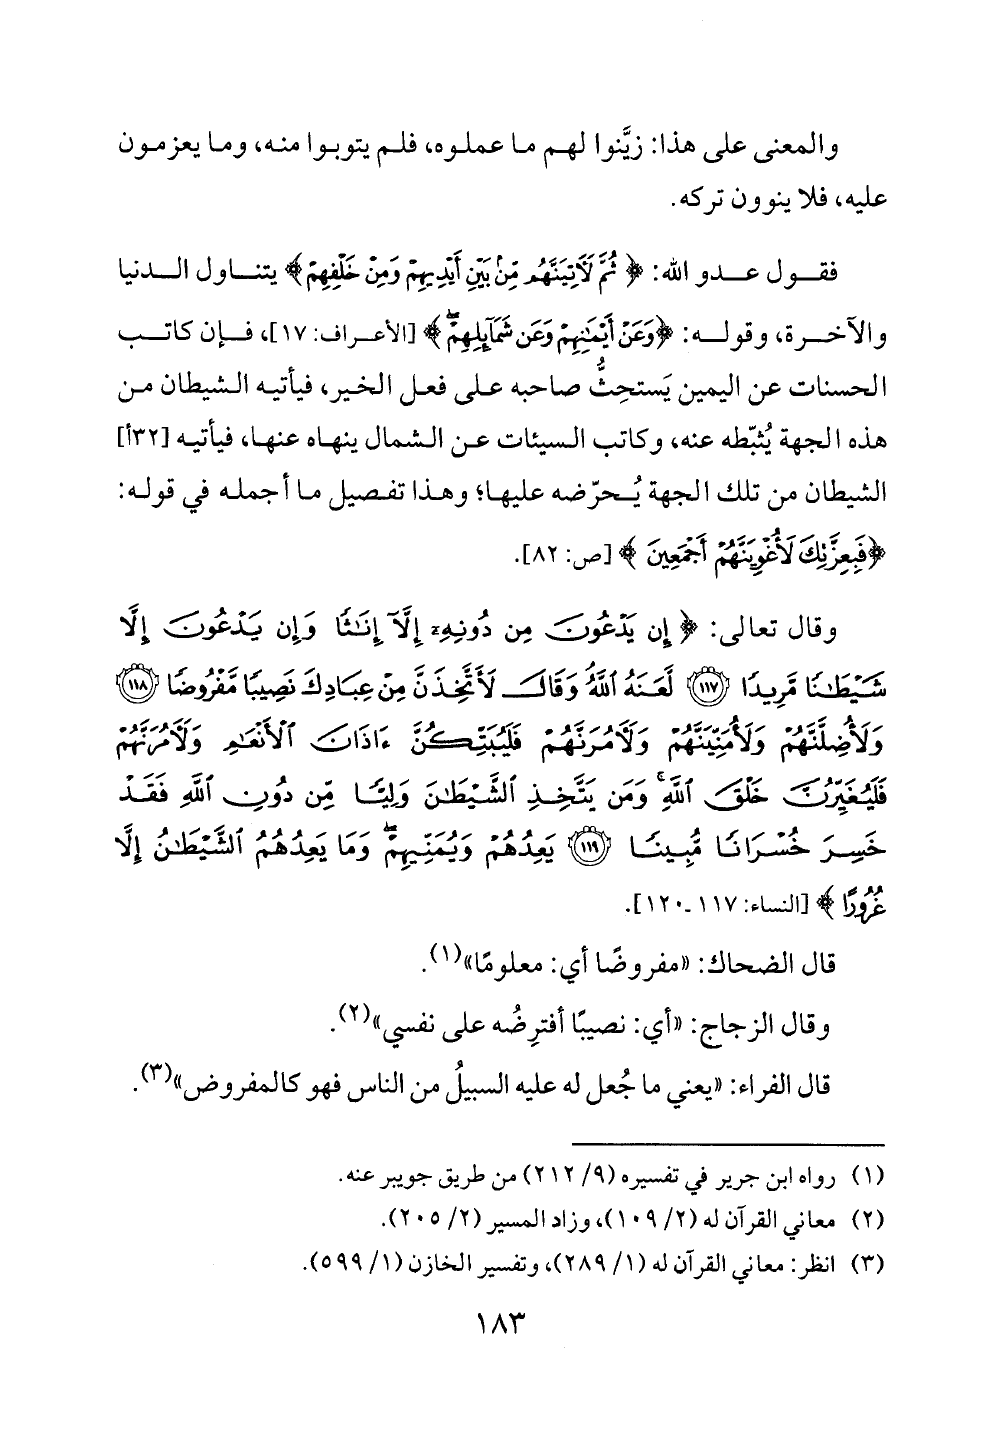 والمعنى على هذا: زيَّنوا لهم ما عملوه، فلم يتوبوا منه، وما يعزمون
عليه، فلا ينوون تركه.
فقول عدو الله: ﴿ثُمَّ لَآتِيَنَّهُم مِّنۢ بَيْنِ أَيْدِيهِمْ وَمِنْ خَلْفِهِمْ﴾ يتناول الدنيا
والآخرة، وقوله: ﴿وَعَنْ أَيْمَٰنِهِمْ وَعَن شَمَآئِلِهِمْ ۖ﴾ [الأعراف: ١٧]، فإن كاتب
الحسنات عن اليمين يَستحِثُّ صاحبه على فعل الخير، فيأتيه الشيطان من
هذه الجهة يُثبّطه عنه، وكاتب السيئات عن الشمال ينهاه عنها، فيأتيه [٣٢أ]
الشيطان من تلك الجهة يُحرّضه عليها؛ وهذا تفصيل ما أجمله في قوله:
﴿فَبِعِزَّتِكَ لَأُغْوِيَنَّهُمْ أَجْمَعِينَ﴾ [ص: ٨٢].
وقال تعالى: ﴿إِن يَدْعُونَ مِن دُونِهِۦٓ إِلَّآ إِنَٰثًا وَإِن يَدْعُونَ إِلَّا
شَيْطَٰنًا مَّرِيدًا ١١٧ لَّعَنَهُ ٱللَّهُ ۘ وَقَالَ لَأَتَّخِذَنَّ مِنْ عِبَادِكَ نَصِيبًا مَّفْرُوضًا ١١٨
وَلَأُضِلَّنَّهُمْ وَلَأُمَنِّيَنَّهُمْ وَلَآمُرَنَّهُمْ فَلَيُبَتِّكُنَّ ءَاذَانَ ٱلْأَنْعَٰمِ وَلَآمُرَنَّهُمْ
فَلَيُغَيِّرُنَّ خَلْقَ ٱللَّهِ ۚ وَمَن يَتَّخِذِ ٱلشَّيْطَٰنَ وَلِيًّا مِّن دُونِ ٱللَّهِ فَقَدْ
خَسِرَ خُسْرَانًا مُّبِينًا ١١٩ يَعِدُهُمْ وَيُمَنِّيهِمْ ۖ وَمَا يَعِدُهُمُ ٱلشَّيْطَٰنُ إِلَّا
غُرُورًا﴾ [النساء: ١١٧ـ١٢٠].
قال الضحاك: «مفروضًا أي: معلومًا»(١).
وقال الزجاج: «أي: نصيبًا أفترِضُه على نفسي»(٢).
قال الفراء: «يعني ما جُعل له عليه السبيلُ من الناس فهو كالمفروض»(٣).
(١) رواه ابن جرير في تفسيره (٩/ ٢١٢) من طريق جويبر عنه.
(٢) معاني القرآن له (٢/ ١٠٩)، وزاد المسير (٢/ ٢٠٥).
(٣) انظر: معاني القرآن له (١/ ٢٨٩)، وتفسير الخازن (١/ ٥٩٩).
١٨٣